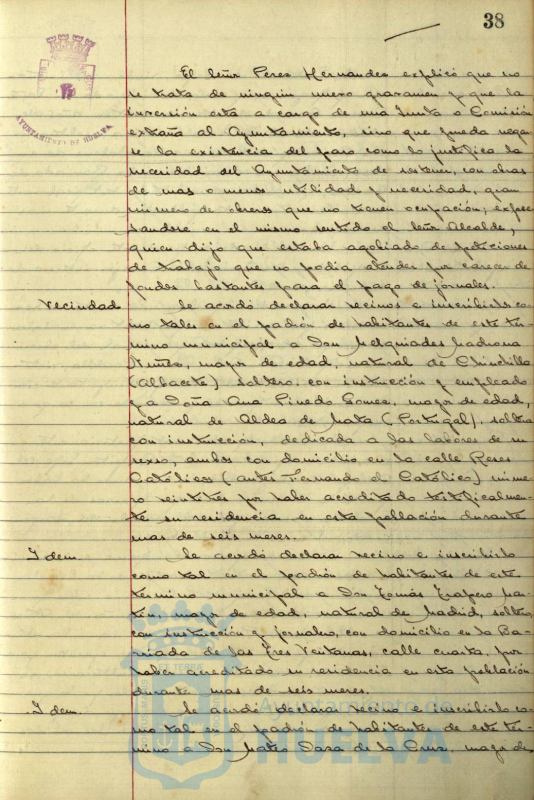 38
AYUNTAMIENTO DE HUELVA
El Señor Perez Hernandez explicó que no
se trata de ningún nuevo gravamen y que la
inversión está a cargo de una Junta o Comisión
extraña al Ayuntamiento, sino que pueda negar
se la existencia del paro como lo justifica la
necesidad del Ayuntamiento de sostener, con obras
de mas o menos utilidad y necesidad, gran
número de obreros que no tienen ocupación; expre
sandose en el mismo sentido el Señor Alcalde,
quien dijo que estaba agobiado de peticiones
de trabajo que no podia atender por carecer de
fondos bastantes para el pago de jornales.
Vecindad Se acordó declarar vecinos e inscribirles co-
mo tales en el padrón de habitantes de este tér-
mino municipal a Don Melquiades Ladrona
Nuñez, mayor de edad, natural de Chinchilla
(Albacete) soltero, con instrucción y empleado
y a Doña Ana Pinedo Gomez, mayor de edad,
natural de Aldea de Mata (Portugal), soltera
con instrucción, dedicada a las labores de su
sexo, ambos con domicilio en la calle Reyes
Católicos (antes Fernando el Católico) núme
ro veintitres por haber acreditado testificalmen-
te su residencia en esta población durante
mas de seis meses.
Idem Se acordó declarar vecino e inscribirlo
como tal en el padrón de habitantes de este
término municipal a Don Tomás
mayor de edad, natural de Madrid, soltero,
con instrucción y jornalero, con domicilio en la Ba-
rriada de las Tres Ventanas, calle cuarta, por
haber acreditado su residencia en esta población
durante mas de seis meses.
Idem Se acordó declarar vecino e inscribirlo co-
mo tal en el padrón de habitantes de este tér-
mino a Don Mateo de la Cruz, mayor de
Ayuntamiento de
HUELVA